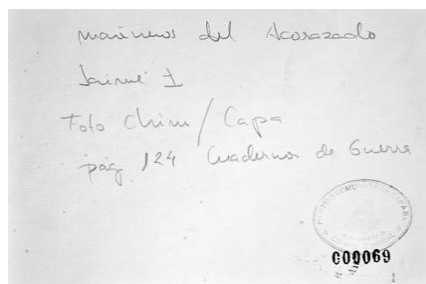 marineros del Acorazado
Jaime I
Foto Chim / Capa
pág 124 Cuadernos de Guerra
000069